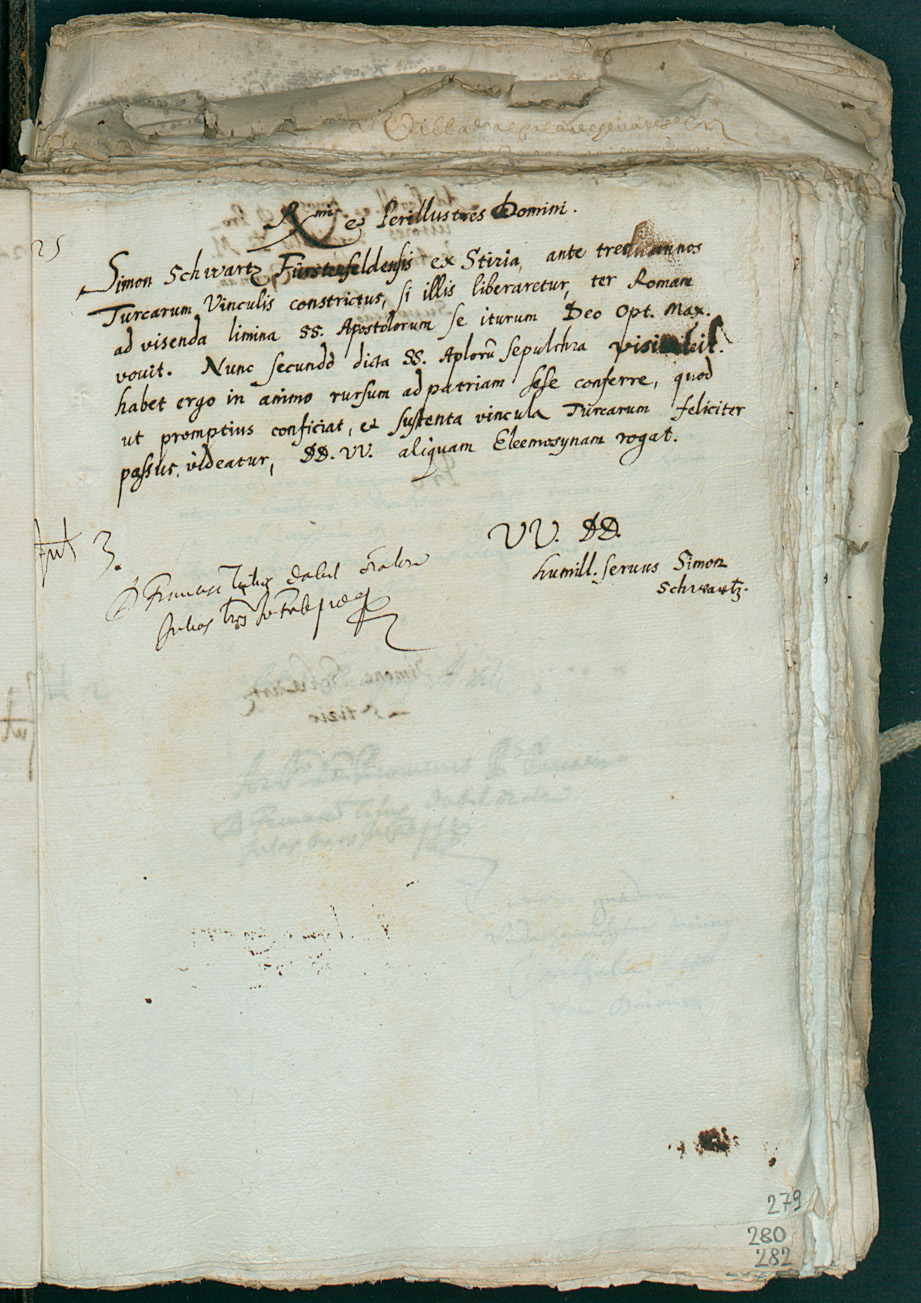 25
R.mi et Perillustres Domini.
Simon Schwartz Fürstenfeldensis ex Stiria, ante tres annos
Turcarum Vinculis constrictus, si illis liberaretur, ter Romam
ad visenda limina SS. Apostolorum se iturum Deo Opt. Max.
vovit. Nunc secundò dicta SS. Aplorũ sepulchra visitavit.
habet ergo in animo rursum ad patriam sese conferre, quod
ut promptius conficiat, et sustenta vincula Turcarum feliciter
passus videatur, DD. VV. aliquam Eleemosynam rogat.
VV. DD.
humill. servus Simon
Schwartz.
3.
279
280
282